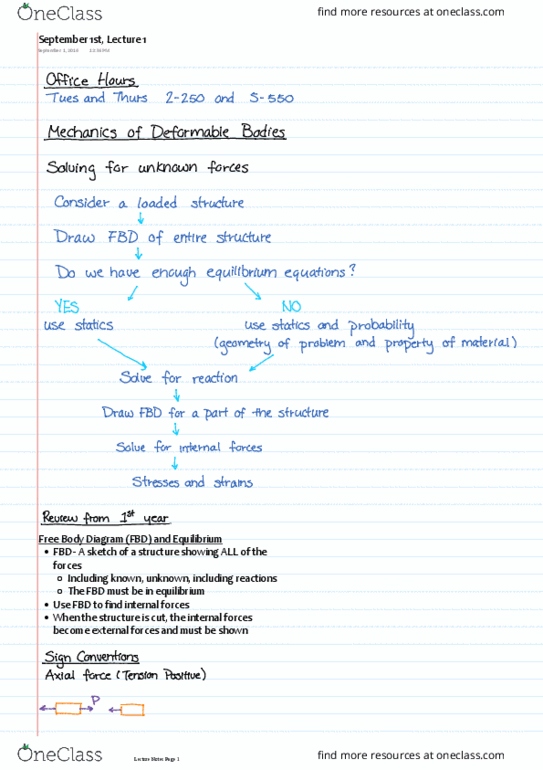 OneClass
find more resources at oneclass.com
September 1st, Lecture 1
September 1, 2016
Office Hours
Tues and Thurs 2-250 and 5-550
Mechanics of Deformable Bodies
Solving for unknown forces
Consider a loaded structure
Draw FBD of entire structure
Do we have enough equilibrium equations?
YES
NO
use statics
use statics and probability
(geometry of problem and property of material)
Solve for reaction
Draw FBD for a part of the structure
Solve for internal forces
Stresses and strains
Review from 1st year
Free Body Diagram (FBD) and Equilibrium
• FBD- A sketch of a structure showing ALL of the
forces
o Including known, unknown, including reactions
o The FBD must be in equilibrium
• Use FBD to find internal forces
• When the structure is cut, the internal forces
become external forces and must be shown
Sign Conventions
Axial force (Tension Positive)
P
OneClass
Lecture Notes Page 1
find more resources at oneclass.com